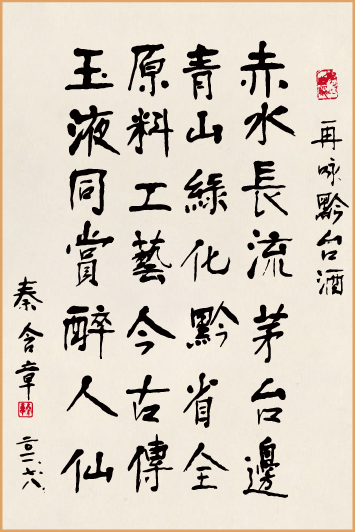 再咏黔台酒
赤水長流茅台邊
青山綠化黔省全
原料工藝今古傳
玉液同賞醉人仙
秦含章